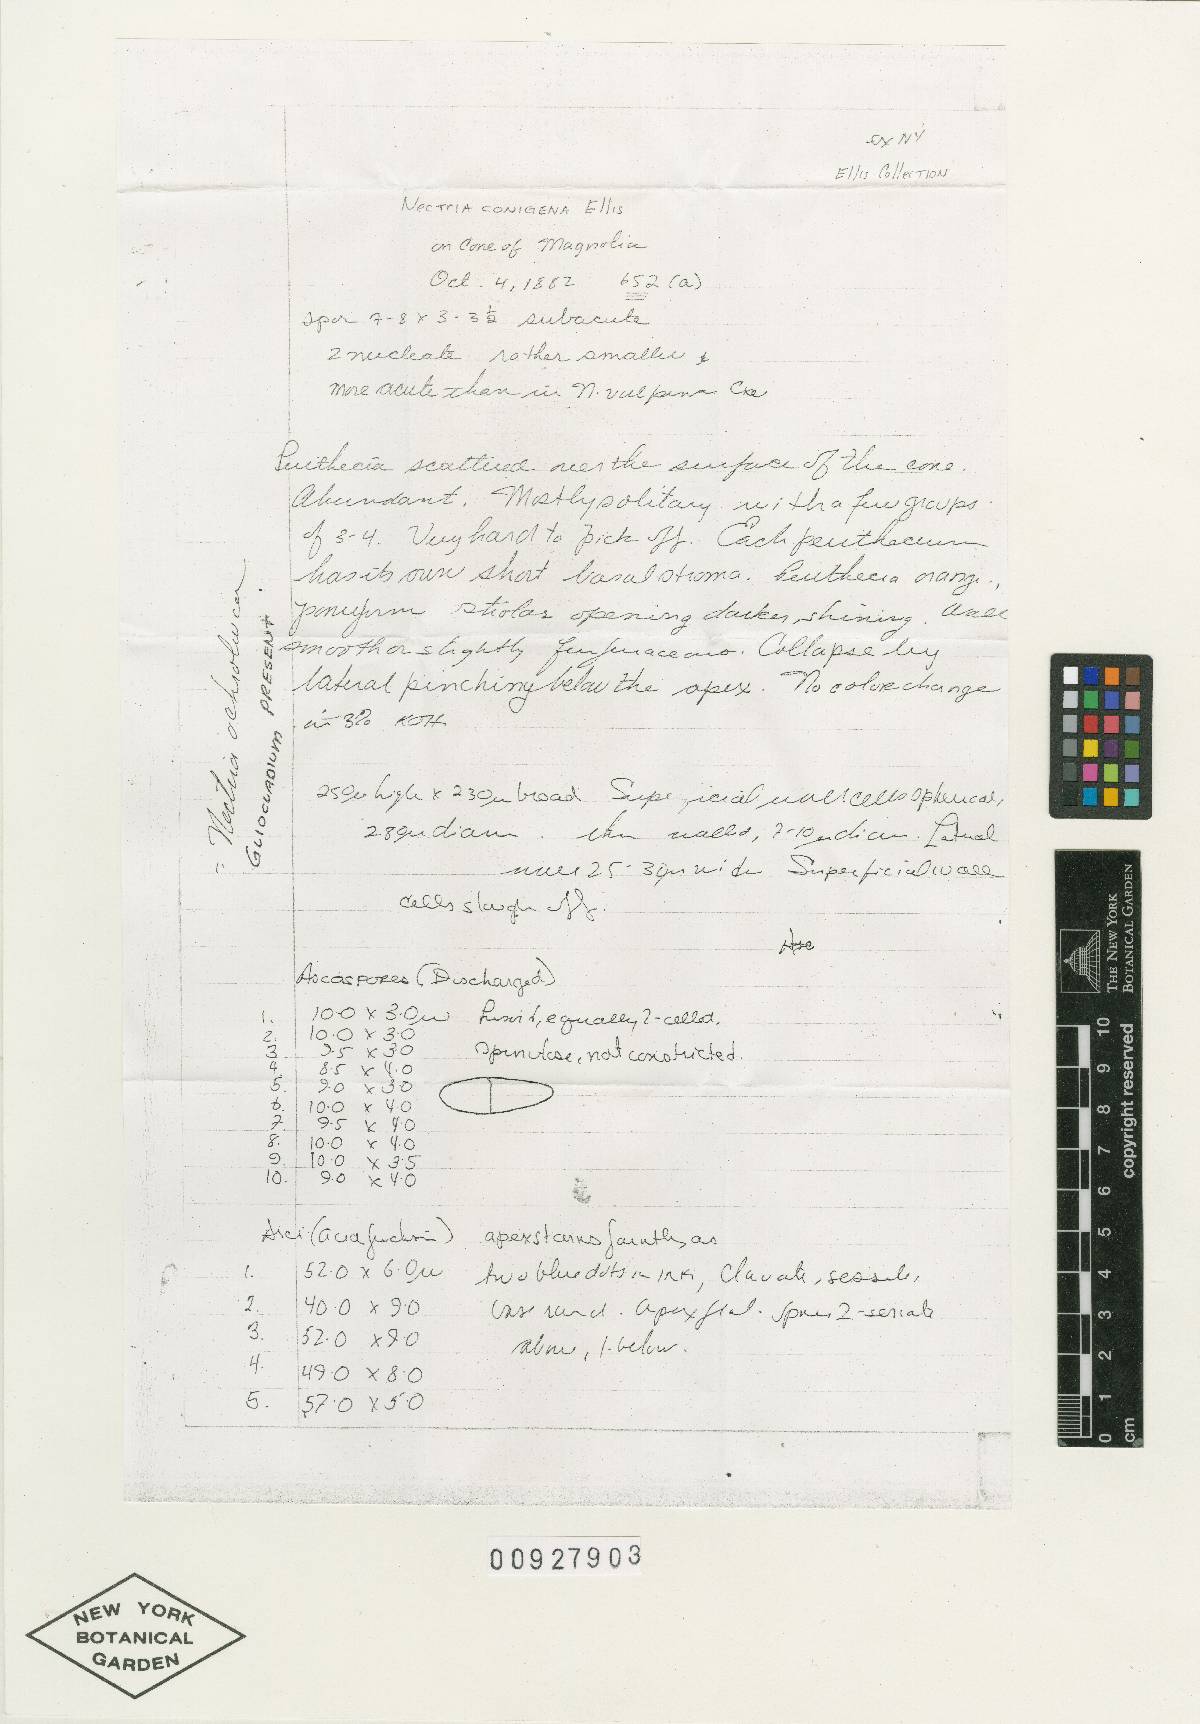 ex NY
Ellis Collection
Nectria conigena Ellis
on Cone of Magnolia
Oct. 4, 1882 652 (a)
spor 7-8 x 3-3 1/2 subacute
2 nucleate rather smaller &
more acute than in N. vulpina Cke
Perithecia scattered over the surface of the cone.
Abundant. Mostly solitary with a few groups
of 3-4. Very hard to pick off. Each perithecium
has its own short basal stroma. Perithecia orange,
pyriform ostiolar opening darker, shining. Wall
smooth or slightly furfuraceous. Collapse by
lateral pinching below the apex. No color change
in 3% KOH
= Nectria ochroleuca
Gliocladium present.
high x 230µ broad Superficial wall cells spherical,
diam. thin walled, 7-10µ diam. Lateral
wide Superficial wall
cells slough off.
Asc
Ascospores (Discharged)
1. 10.0 x 3.0µ Fusoid, equally 2-celled,
2. 10.0 x 3.0
3. 9.5 x 3.0 spinulose, not constricted.
4. 8.5 x 4.0
5. 9.0 x 3.0
6. 10.0 x 4.0
7. 9.5 x 4.0
8. 10.0 x 4.0
9. 10.0 x 3.5
10. 9.0 x 4.0
Asci (acid fuchsin) apex stains faintly as
1. 52.0 x 6.0µ two blue dots in ink, Clavate, sessile,
2. 40.0 x 9.0 base round. Apex flat. Spores 2-seriate
3. 52.0 x 9.0 above, 1-below.
4. 49.0 x 8.0
5. 57.0 x 5.0
00927903
NEW YORK
BOTANICAL
GARDEN
The New York
Botanical Garden
copyright reserved
0 1 2 3 4 5 6 7 8 9 10
cm